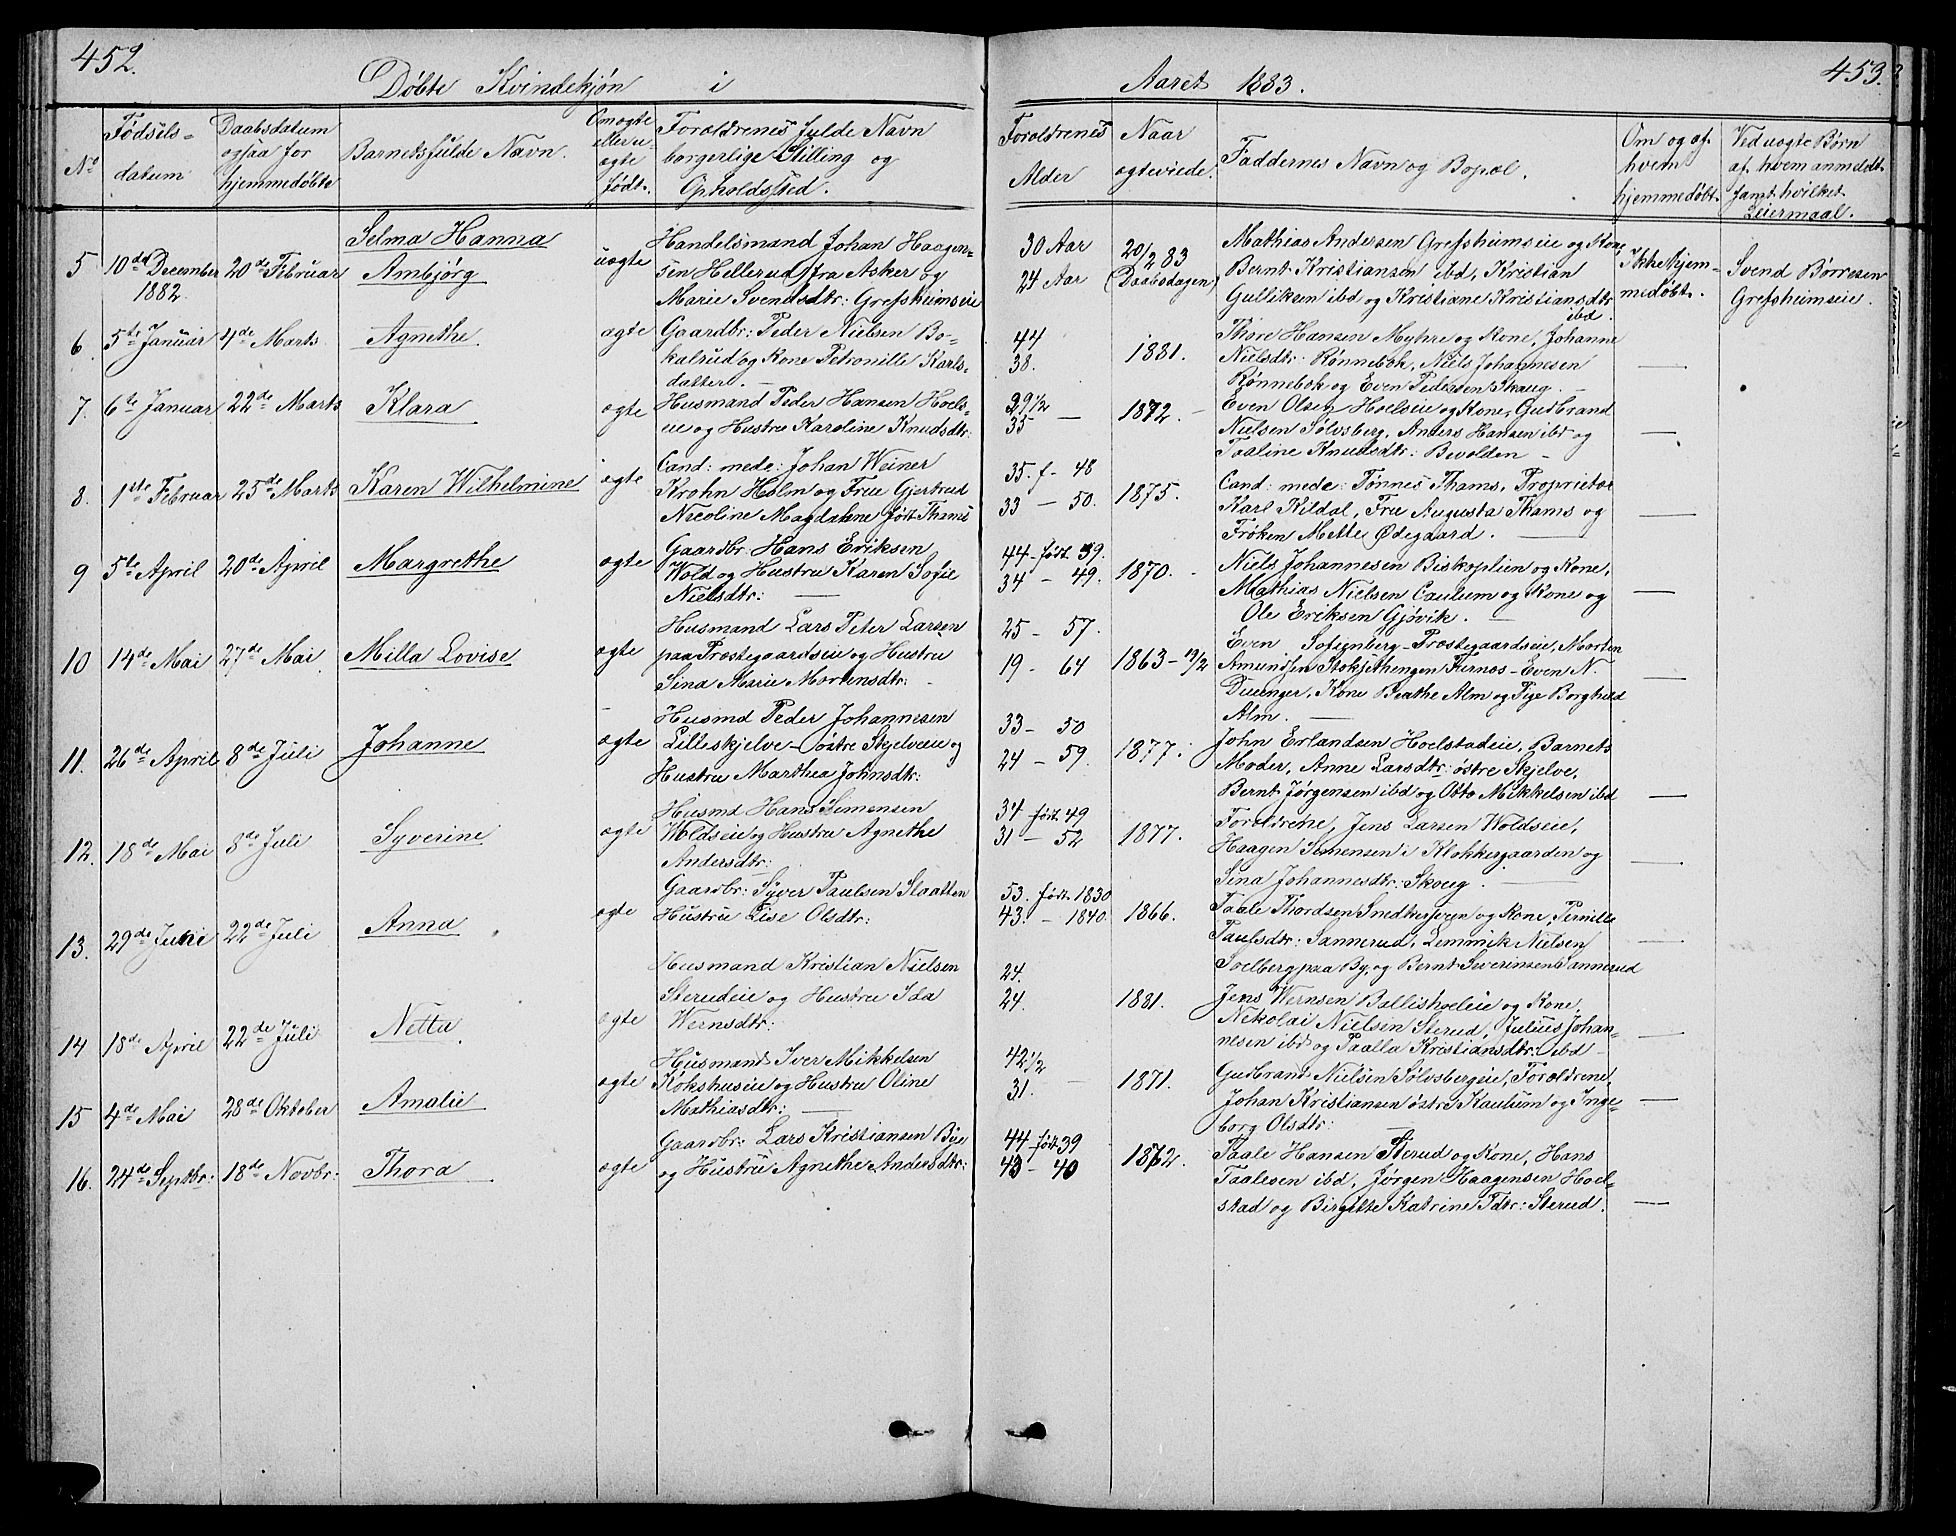 452.
Døbte Kvindekjøn i
Aaret 1883.
453.
No
Fødsels-
datum
Daabsdatum
ogsaa for
hjemmedøbte
Barnets fulde Navn.
Om ægte
eller u-
ægte
født.
Forældrenes fulde Navn
borgerlige Stilling og
Opholdssted.
Forældrenes
Alder
Naar
ægteviede.
Faddernes Navn og Bopæl.
Om og af
hvem
hjemmedøbt.
Ved uægte Børn
af hvem anmeldt
samt hvilket
Leiermaal.
5
10de December
1882.
20de Februar
Selma Hanna
Ambjørg
uægte
Handelsmand Johan Haagen-
sen Hellerud fra Asker og
Marie Svendsdtr: Grefsheimseie
30 Aar
24 Aar
20/2 83
(Daabsdagen)
Mathias Andersen Grefsheimseie og Kone,
Bernt Kristiansen ibd, Kristian
Gulliksen ibd og Kristiane Kristiansdtr
ibd.
Ikke hjem-
medøbt.
Svend Børresen
Grefsheimseie.
6.
5te Januar
4de Marts
Agnethe.
ægte
Gaardbr: Peder Nielsen Bo-
kalrud og Kone Petronille Karls-
datter. —
44
38.
1881.
Thore Hansen Myhre og Kone, Johanne
Nielsdtr: Rønnebok, Niels Johannesen
Rønnebok og Even Pedersen Skaug. —
—
7.
6te Januar
22de Marts
Klara
ægte
Husmand Peder Hansen Hoels-
eie og Hustru Karoline Knudsdtr:
39 1/2
35 —
1872. -
Even Olsen Hoelseie og Kone, Gudbrand
Nielsen Sølvsberg, Anders Hansen ibd og
Taaline Knudsdtr: Bevolden -
—
8.
1ste Februar
25de Marts
Karen Wilhelmine
ægte
Cand: mede: Johan Weiner
Krohn Holm og Frue Gjertrud
Nicoline Magdalene født Thams
35. f- 48
33 — 50.
1875.
Cand: mede: Tønnes Thams, Proprietær
Karl Kildal, Frue Augusta Thams og
Frøken Mette Ødegaard. —
—
9
5te April
20de April
Margrethe
ægte
Gaardbr. Hans Eriksen
Wold og Hustru Karen Sofie
Nielsdtr: —
44 - født 39.
34 - 49.
1870. -
Niels Johannesen Biskoplien og Kone,
Mathias Nielsen Caulum og Kone og
Ole Eriksen Gjøvik. —
—
10
14de Mai
27de Mai
Milla Lovise
ægte
Husmand Lars Peter Larsen
paa Præstegaardseie og Hustru
Sina Marie Mortensdtr: -
25 - 57.
19 - 64
1863 - 19/2
Even Sofienberg - Præstegaardseie, Morten
Amundsen Stokjethengen Furnæs - Even N.
Duenger, Kone Beathe Alm og Pige Borghild
Alm. —
—
11.
26de April
8de Juli
Johanne
ægte
Husmd Peder Johannesen
Lilleskjelve - østre Skjelveeie og
Hustru Marthea Johnsdtr:
33 - 50
24 - 59.
1877.
John Erlandsen Hoelstadeie, Barnets
Moder, Anne Larsdtr: østre Skjelve,
Bernt Jørgensen ibd og Otto Mikkelsen ibd
—
12.
18de Mai
8de Juli
Syverine
ægte
Husmd Hans Simensen
Woldseie og Hustru Agnethe
Andersdtr:
34 født 49
31 - 52
1877.
Forældrene, Jens Larsen Woldseie,
Haagen Simensen i Klokkergaarden og
Sina Johannesdtr: Skoug. —
—
13.
29de Juni
22de Juli
Anna
ægte
Gaardbr: Syver Paulsen Slaatten
Hustru Lise Olsdtr:
53. født 1830
43. - 1840.
1866.
Taale Thordsen Smedhersveen og Kone, Pernille
Paulsdtr: Sannerud, Lemmik Nielsen
Solberg paa By, og Bernt Severinsen Sannerud
—
14
18de April
22de Juli
Netta
ægte
Husmand Kristian Nielsen
Sterudeie og Hustru Ida
Wernsdtr:
24.
24.
1881.
Jens Wernsen Ballisholeie og Kone,
Nikolai Nielsen Sterud, Julius Johan-
nesen ibd og Paalla Kristiansdtr: ibd -
—
15
4de Mai
28de Oktober
Amalie
ægte
Husmand Iver Mikkelsen
Kokshuseie og Hustru Oline
Mathiasdtr: —
42 1/2
31. —
1871.
Gudbrand Nielsen Sølvsbergeie, Forældrene,
Johan Kristiansen østre Kaulum og Inge-
borg Olsdtr: —
—
16.
24de Septbr:
18de Novbr:
Thora
ægte
Gaardbr: Lars Kristiansen Bye
og Hustru Agnethe Andersdtr:
44 født 39
43 - 40
1862.
Taale Hansen Sterud og Kone, Hans
Taalesen ibd, Jørgen Haagensen Hoel-
stad og Birgitte Katrine Tdtr: Sterud.
—